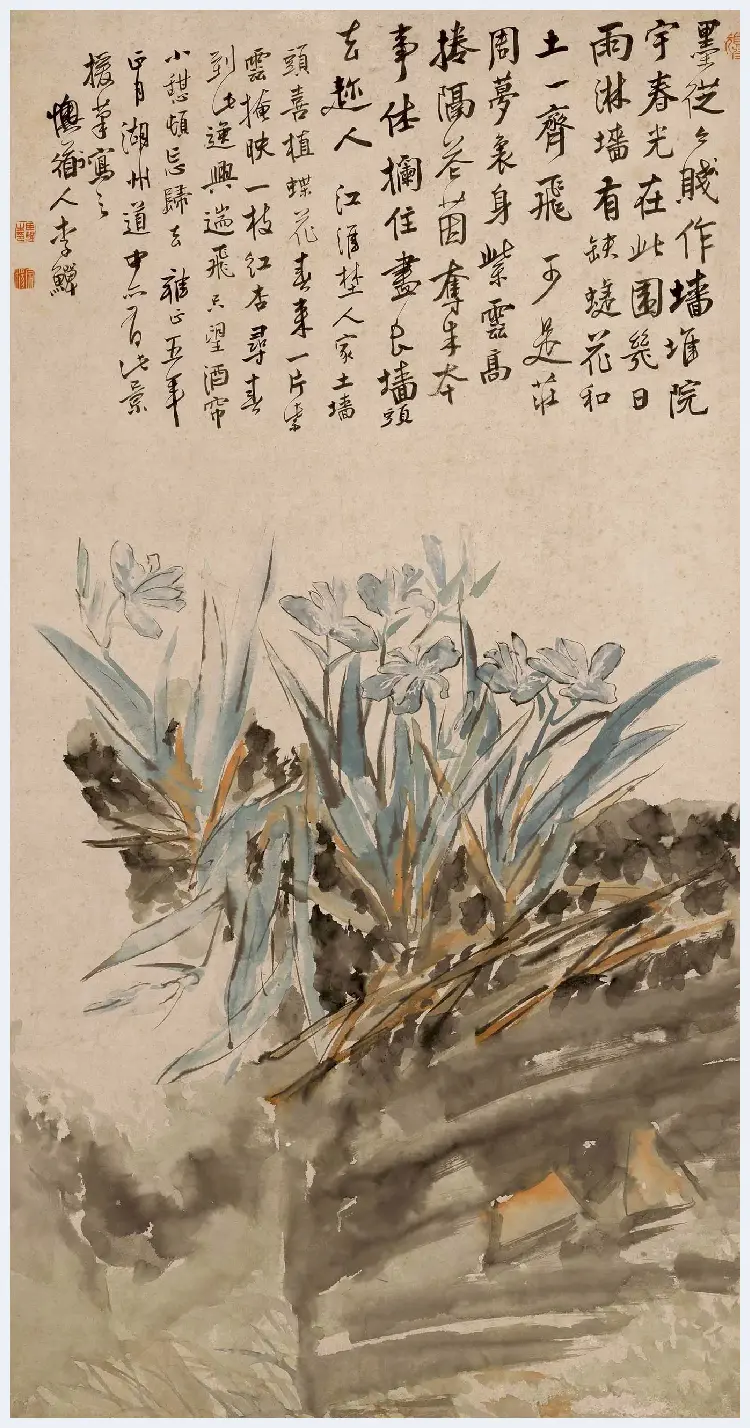 墨從今賤作墻堆院
宇春光在此圍幾日
雨淋墻有缺蝶花和
土一齊飛 可是莊
周夢裏身紫雲高
捲隔花茵奪朱本
事休攔住盡長墻頭
去趂人 江淮埜人家土墻
頭喜植蝶花春來一片紫
雲掩映一枝紅杏尋春
到此逸興遄飛只望酒帘
小憩頓忘歸去 雍正五年
正月湖州道中亦有此景
援筆寫之
懊道人李鱓